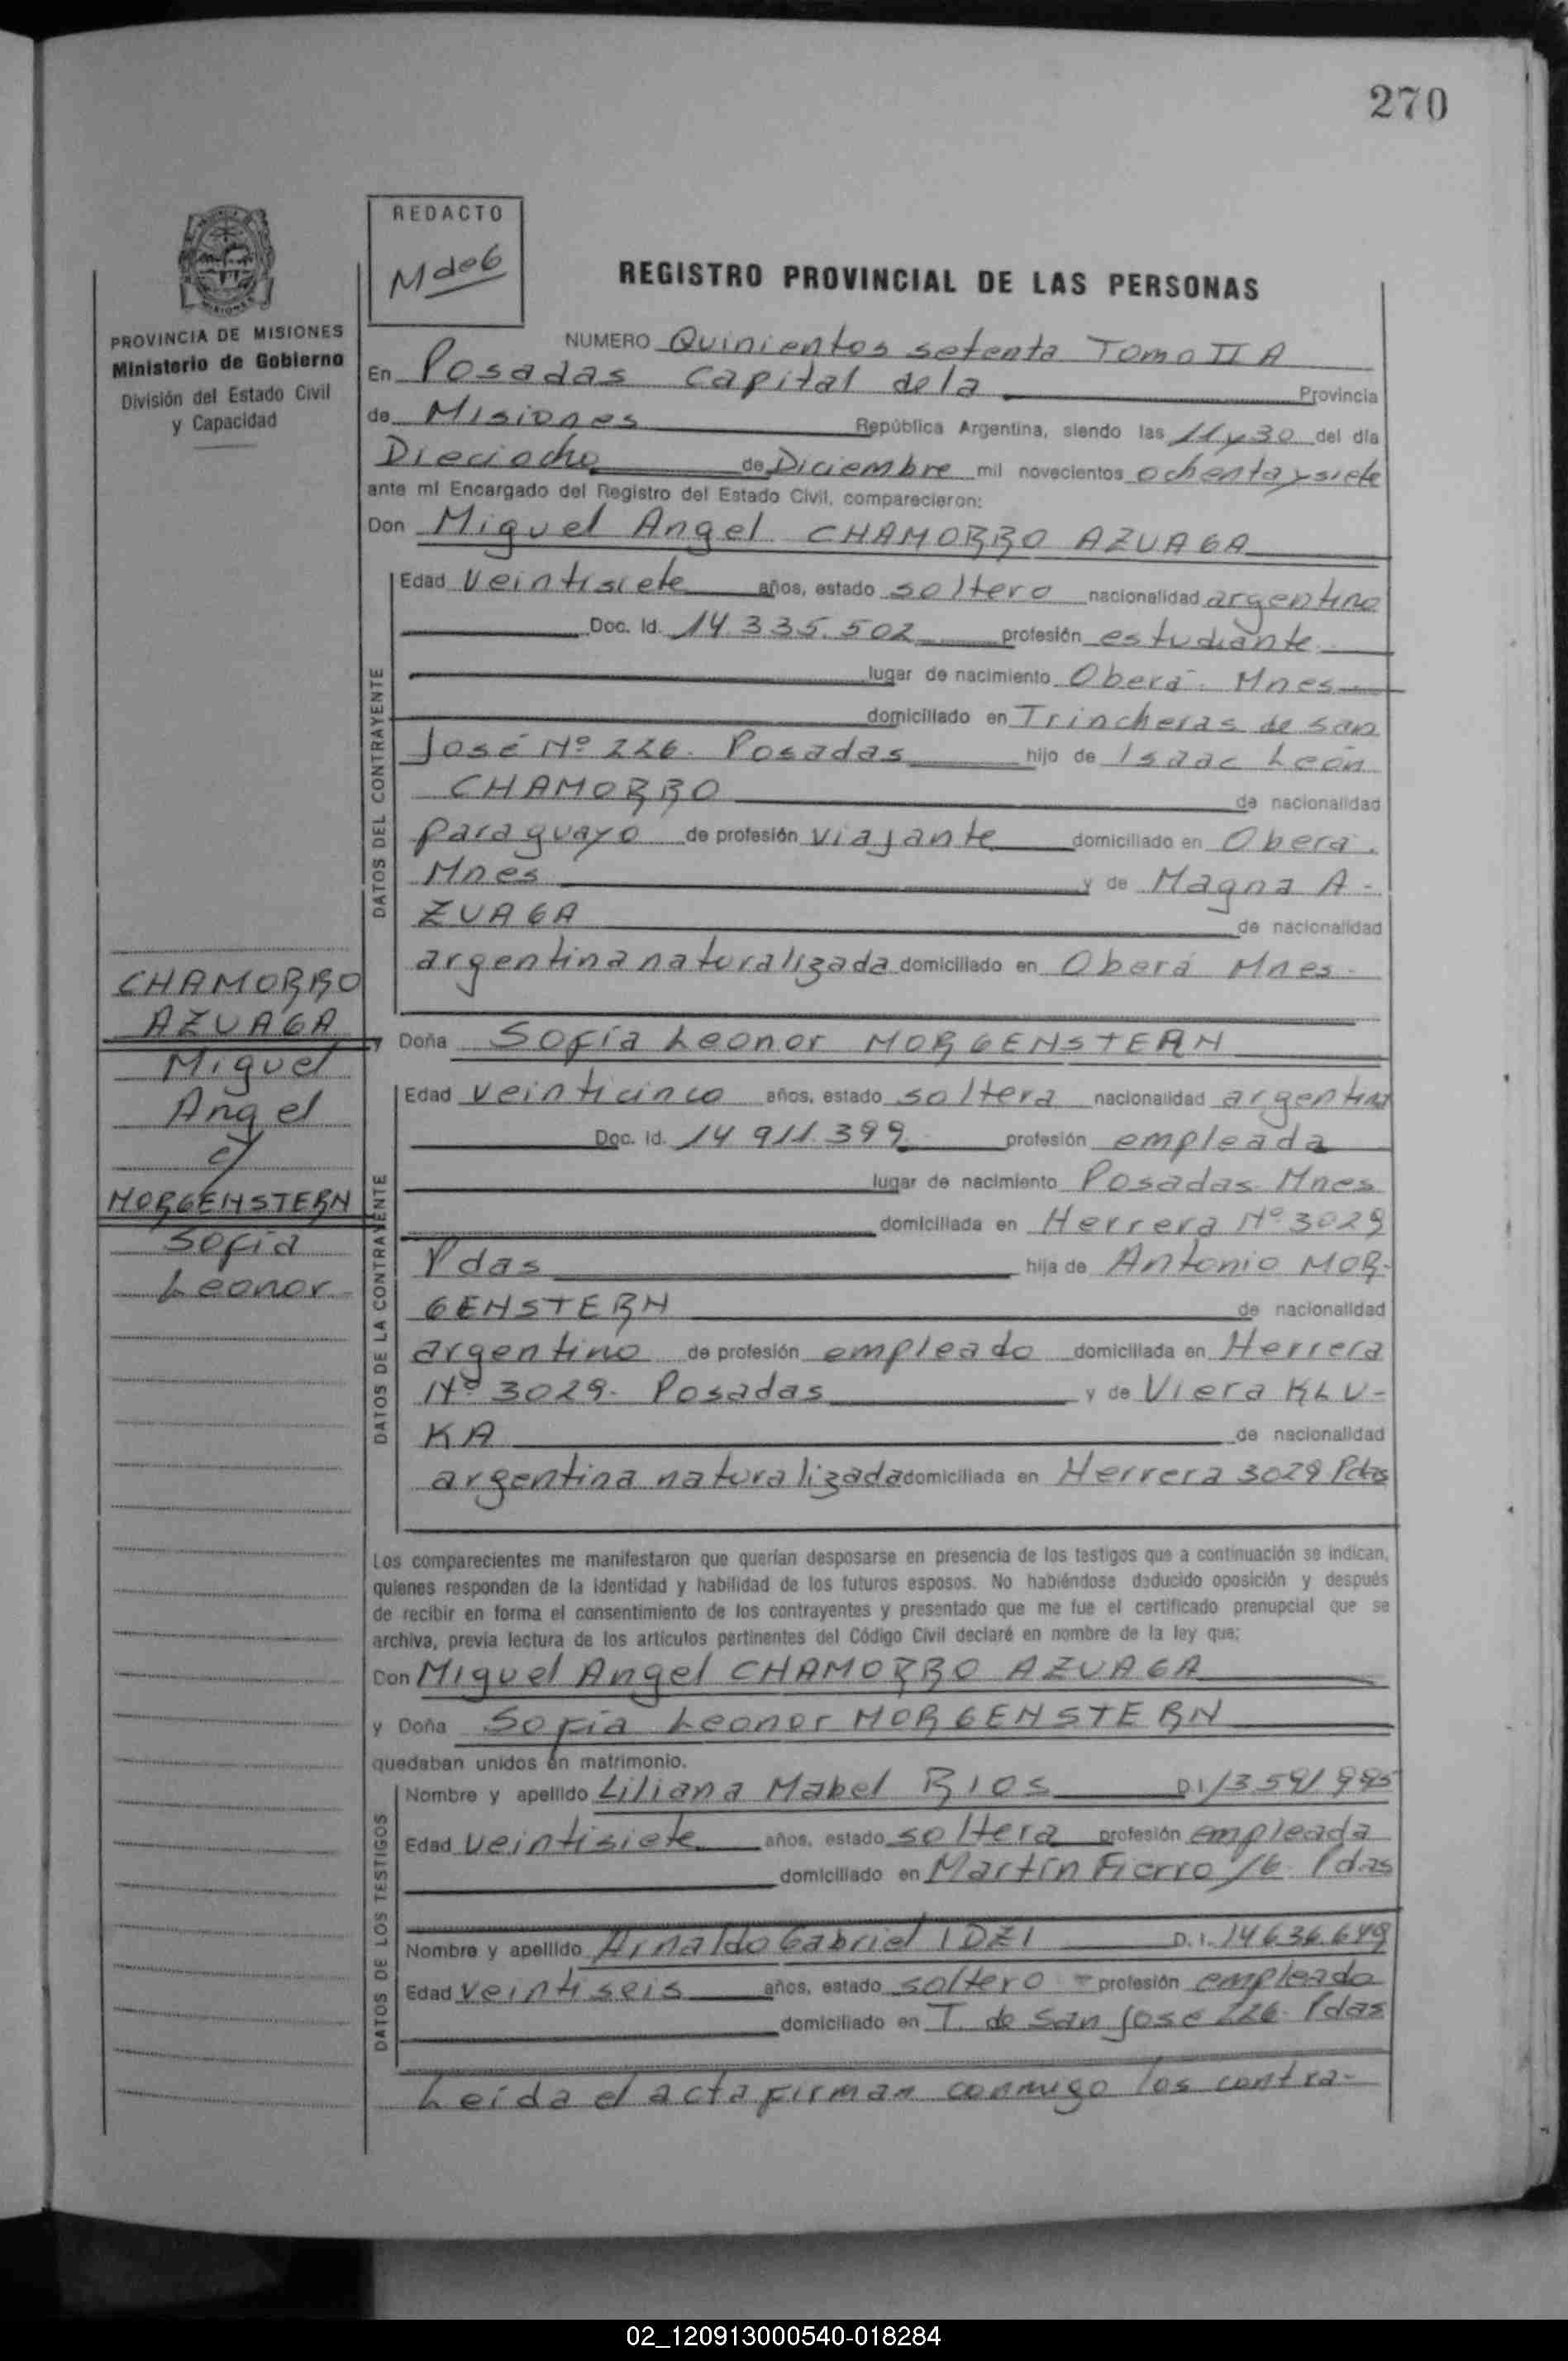 270
REDACTO
M de 6
REGISTRO PROVINCIAL DE LAS PERSONAS
PROVINCIA DE MISIONES
Ministerio de Gobierno
División del Estado Civil
y Capacidad
NUMERO Quinientos setenta Tomo II A
En Posadas capital de la Provincia
de Misiones República Argentina, siendo las 11 y 30 del día
Dieciocho de Diciembre mil novecientos ochenta y siete
ante mi Encargado del Registro del Estado Civil, comparecieron:
Don Miguel Angel CHAMORRO AZUAGA
DATOS DEL CONTRAYENTE
Edad veintisiete años, estado soltero nacionalidad argentino
Doc. Id. 14.335.502 profesión estudiante
lugar de nacimiento Oberá - Mnes
domiciliado en Trincheras de san
José Nº 226. Posadas hijo de Isaac León
CHAMORRO de nacionalidad
paraguayo de profesión viajante domiciliado en Oberá.
Mnes y de Magna A-
ZUAGA de nacionalidad
argentina naturalizada domiciliado en Oberá Mnes.
CHAMORRO
AZUAGA
Miguel
Angel
y
MORGENSTERN
Sofía
Leonor
Doña Sofía Leonor MORGENSTERN
DATOS DE LA CONTRAYENTE
Edad veinticinco años, estado soltera nacionalidad argentina
Doc. Id. 14.911.399 profesión empleada
lugar de nacimiento Posadas Mnes
domiciliada en Herrera Nº 3029
Pdas hija de Antonio MOR-
GENSTERN de nacionalidad
argentino de profesión empleado domiciliada en Herrera
Nº 3029- Posadas y de Viera KLU-
KA de nacionalidad
argentina naturalizada domiciliada en Herrera 3029 Pdas
Los comparecientes me manifestaron que querían desposarse en presencia de los testigos que a continuación se indican,
quienes responden de la identidad y habilidad de los futuros esposos. No habiéndose deducido oposición y después
de recibir en forma el consentimiento de los contrayentes y presentado que me fue el certificado prenupcial que se
archiva, previa lectura de los artículos pertinentes del Código Civil declaré en nombre de la ley que:
Don Miguel Angel CHAMORRO AZUAGA
y Doña Sofía Leonor MORGENSTERN
quedaban unidos en matrimonio.
DATOS DE LOS TESTIGOS
Nombre y apellido Liliana Mabel RIOS D.I. 13591995
Edad veintisiete años, estado soltera profesión empleada
domiciliado en Martín Fierro 16 Pdas
Nombre y apellido Arnaldo Gabriel IDZI D.I. 14636.649
Edad veintiseis años, estado soltero - profesión empleado
domiciliado en T. de San José 226- Pdas
Leída el acta firman conmigo los contra-
02_120913000540-018284